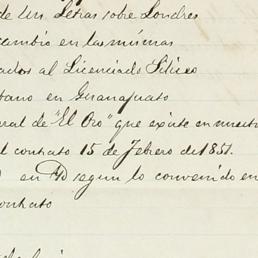 de una Letras sobre Londres
cambio en las mismas
ados al Licenciado
bano en Guanajuato
ral de "El Oro" que existe en nuestr
l contrato 15 de Febrero de 1851.
en segun lo convenido en
contrato